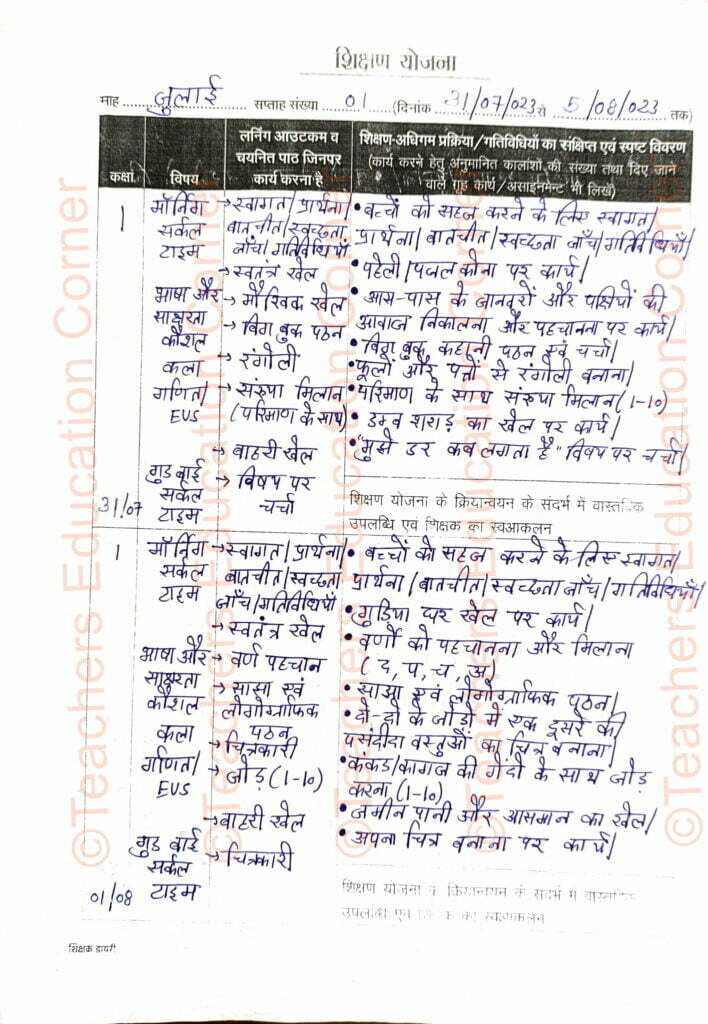 शिक्षण योजना
माह जुलाई सप्ताह संख्या 01 (दिनांक 31/07/023 से 5/08/023 तक)
कक्षा
विषय
लर्निंग आउटकम व
चयनित पाठ जिनपर
कार्य करना है
शिक्षण-अधिगम प्रक्रिया/गतिविधियों का संक्षिप्त एवं स्पष्ट विवरण
(कार्य करने हेतु अनुमानित कालांशों की संख्या तथा दिए जाने
वाले गृह कार्य/असाइनमेंट भी लिखें)
1
31/07
मॉर्निंग
सर्कल
टाइम
भाषा और
साक्षरता
कौशल
कला
गणित/
EVS
गुड बाई
सर्कल
टाइम
→ स्वागत/प्रार्थना/
बातचीत/स्वच्छता
जाँच/गतिविधियाँ
→ स्वतंत्र खेल
→ मौखिक खेल
→ बिग बुक पठन
→ रंगोली
→ संख्या मिलान
(परिमाण के साथ)
→ बाहरी खेल
→ विषय पर
चर्चा
• बच्चों को सहज करने के लिए स्वागत/
प्रार्थना/बातचीत/स्वच्छता जाँच/गतिविधियाँ/
• पहेली/पजल कोना पर कार्य/
• आस-पास के जानवरों और पक्षियों की
आवाज निकालना और पहचानना पर कार्य/
• बिग बुक, कहानी पठन एवं चर्चा/
• फूलों और पत्तों से रंगोली बनाना/
• परिमाण के साथ संख्या मिलान (1-10)
• डम्ब शराड का खेल पर कार्य/
• "मुझे डर कब लगता है" विषय पर चर्चा/
शिक्षण योजना के क्रियान्वयन के संदर्भ में वास्तविक
उपलब्धि एवं शिक्षक का स्वआकलन
1
01/08
मॉर्निंग
सर्कल
टाइम
भाषा और
साक्षरता
कौशल
कला
गणित/
EVS
गुड बाई
सर्कल
टाइम
→ स्वागत/प्रार्थना/
बातचीत/स्वच्छता
जाँच/गतिविधियाँ
→ स्वतंत्र खेल
→ वर्ण पहचान
→ साझा एवं
लोगोग्राफिक
पठन
→ चित्रकारी
→ जोड़ (1-10)
→ बाहरी खेल
→ चित्रकारी
• बच्चों को सहज करने के लिए स्वागत/
प्रार्थना/बातचीत/स्वच्छता जाँच/गतिविधियाँ/
• गुड़िया घर खेल पर कार्य/
• वर्णों को पहचानना और मिलाना
(द, प, च, अ)
• साझा एवं लोगोग्राफिक पठन/
• दो-दो के जोड़ो में एक दूसरे की
पसंदीदा वस्तुओं का चित्र बनाना/
• कंकड़/कागज की गेंदों के साथ जोड़
करना (1-10)
• जमीन पानी और आसमान का खेल/
• अपना चित्र बनाना पर कार्य/
शिक्षण योजना के क्रियान्वयन के संदर्भ में वास्तविक
उपलब्धि एवं शिक्षक का स्वआकलन
शिक्षक डायरी
©Teachers Education Corner
©Teachers Education Corner
©Teachers Education Corner
©Teachers Education Corner
©Teachers Education Corner